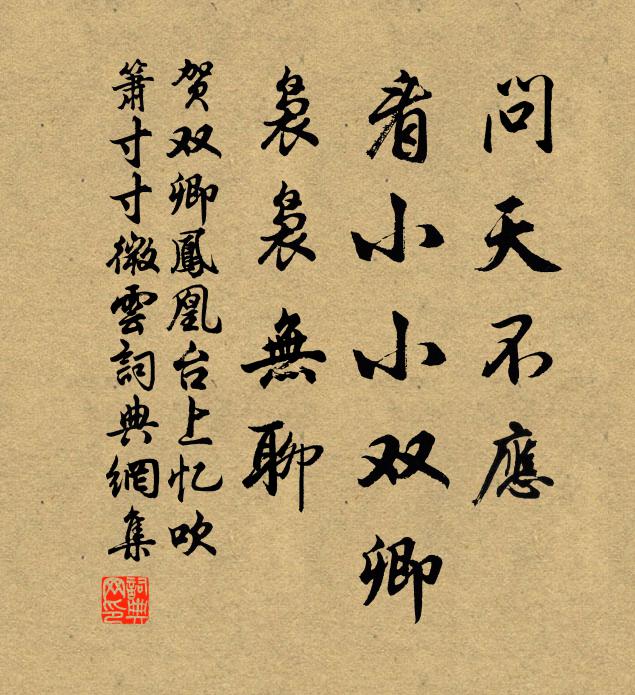 問天不應
看小小双卿
裊裊無聊
贺双卿鳳凰台上忆吹
簫寸寸微雲詞典網集
詞典网印